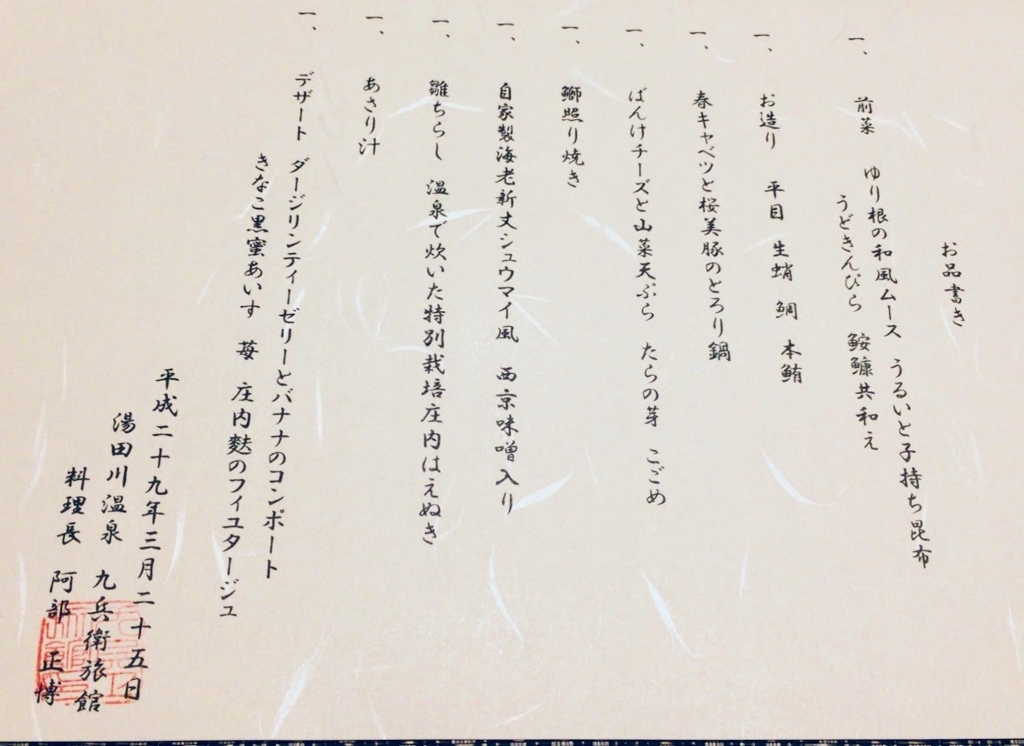 お品書き
一、 前菜 ゆり根の和風ムース うるいと子持ち昆布
うどきんぴら 鮟鱇共和え
一、 お造り 平目 生蛸 鯛 本鮪
一、 春キャベツと桜美豚のとろり鍋
一、 ばんけチーズと山菜天ぷら たらの芽 こごめ
一、 鰤照り焼き
一、 自家製海老新丈シュウマイ風 西京味噌入り
一、 雛ちらし 温泉で炊いた特別栽培庄内はえぬき
一、 あさり汁
一、 デザート ダージリンティーゼリーとバナナのコンポート
きなこ黒蜜あいす 苺 庄内麩のフィユタージュ
平成二十九年三月二十五日
湯田川温泉 九兵衛旅館
料理長 阿部 正博